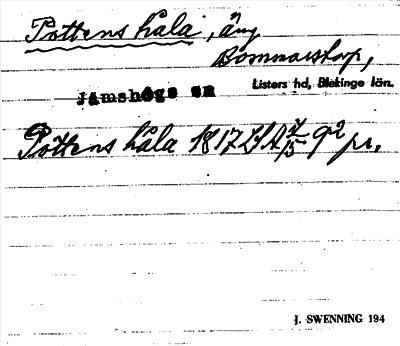 Pottens håla, äng
Bommarstorp,
Jämshögs sn Listers hd, Blekinge län.
Pottens håla 1817 LSA 92 pr.
J. SWENNING 194